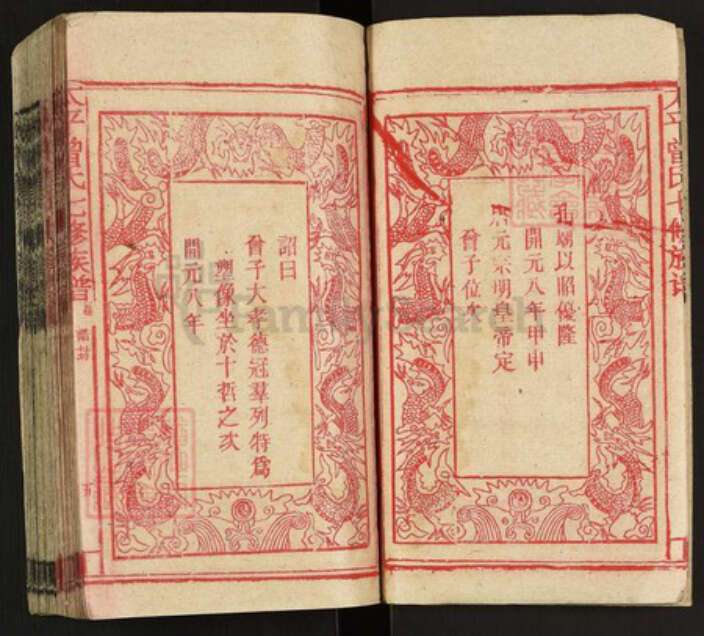 太平曾氏七修族譜
孔廟以昭優隆
開元八年甲申
唐元宗明皇帝定
曾子位次
詔曰
曾子大孝德冠羣列特爲
塑像坐於十哲之次
開元八年
太平曾氏七修族譜
FamilySearch